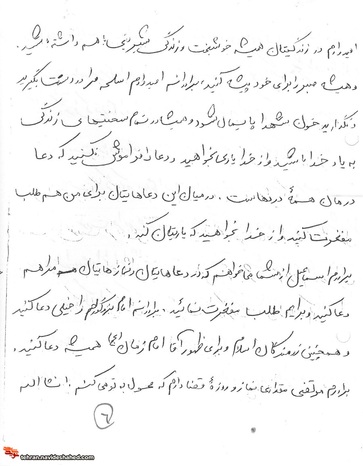 امیدوارم در زندگیتان همیشه خوشبخت و زندگی داشته باشید.
و همیشه صبر را برای خود پیشه کنید، برادرانم امیدوارم اسلحه مرا در دست بگیرید
و نگذارید خون شهدا پایمال شود و همیشه در تمام سختیهای زندگی
به یاد خدا باشید و از خدا یاری بخواهید و دعا را فراموش نکنید که دعا
درمان همهٔ دردهاست. در میان این دعاهایتان برای من هم طلب
مغفرت کنید و از خدا بخواهید که یاریتان کند.
برادرم اسماعیل از شما می‌خواهم که در دعاهایتان و نمازهایتان مرا هم
دعا کنید و برایم طلب مغفرت نمائید. برادرانم امام بزرگوارم را خیلی دعا کنید
و همچنین رزمندگان اسلام و برای ظهور آقا امام زمان (عج) همیشه دعا کنید.
برادرم مقداری نماز و روزهٔ قضا دارم که به تو می‌کنم انشاءاله
۶
tehran.navideshahed.com